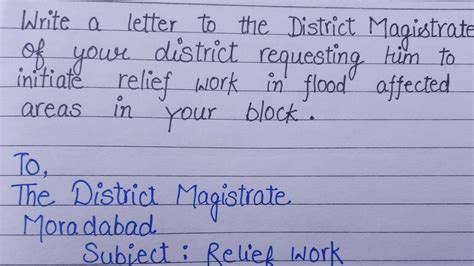 Write a letter to the District Magistrate
of your district requesting him to
initiate relief work in flood affected
areas in your block.
To,
The District Magistrate
Moradabad
Subject : Relief work